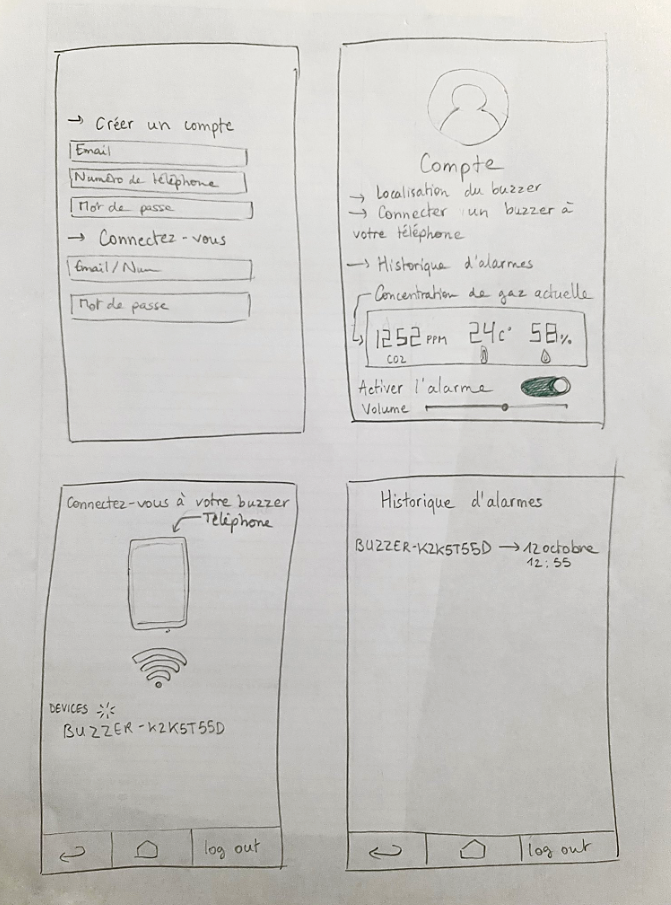 → Créer un compte
Email
Numéro de téléphone
Mot de passe
→ Connectez-vous
Email/Num
Mot de passe
Compte
→ Localisation du buzzer
→ Connecter un buzzer à
votre téléphone
→ Historique d'alarmes
Concentration de gaz actuelle
1252 PPM 24c° 58%
CO2
Activer l'alarme
Volume
Connectez-vous à votre buzzer
Téléphone
DEVICES
BUZZER-K2K5T55D
log out
Historique d'alarmes
BUZZER-K2K5T55D → 12 octobre
12:55
log out